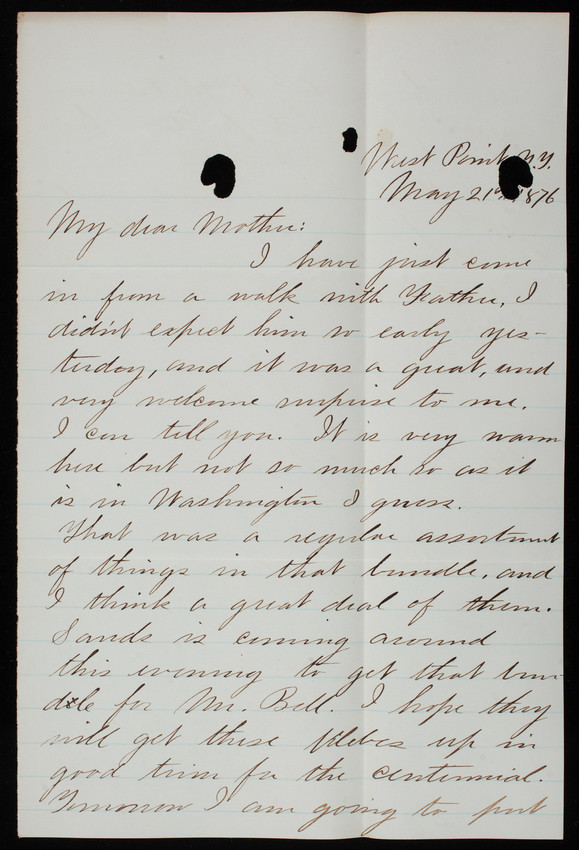 West Point N.Y.
May 21st 1876
My dear Mother:
I have just come
in from a walk with Father, I
didn't expect him so early yes-
terday, and it was a great, and
very welcome surprise to me.
I can tell you. It is very warm
here but not so much so as it
is in Washington I guess.
That was a regular assortment
of things in that bundle, and
I think a great deal of them.
Sands is coming around
this evening to get that bun-
dle for Mr. Bell. I hope they
will get these plebes up in
good trim for the centennial.
Tomorrow I am going to put